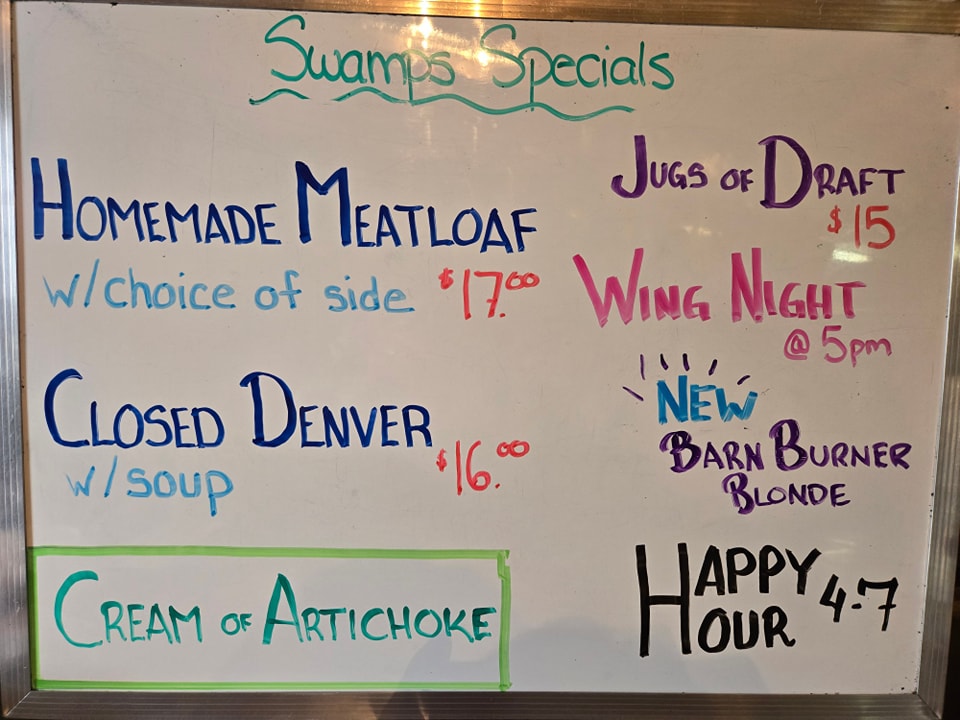 Swamps Specials
HOMEMADE MEATLOAF
w/choice of side $17.00
CLOSED DENVER
w/soup $16.00
CREAM OF ARTICHOKE
JUGS OF DRAFT
$15
WING NIGHT
@ 5pm
NEW
BARN BURNER
BLONDE
HAPPY
HOUR 4-7